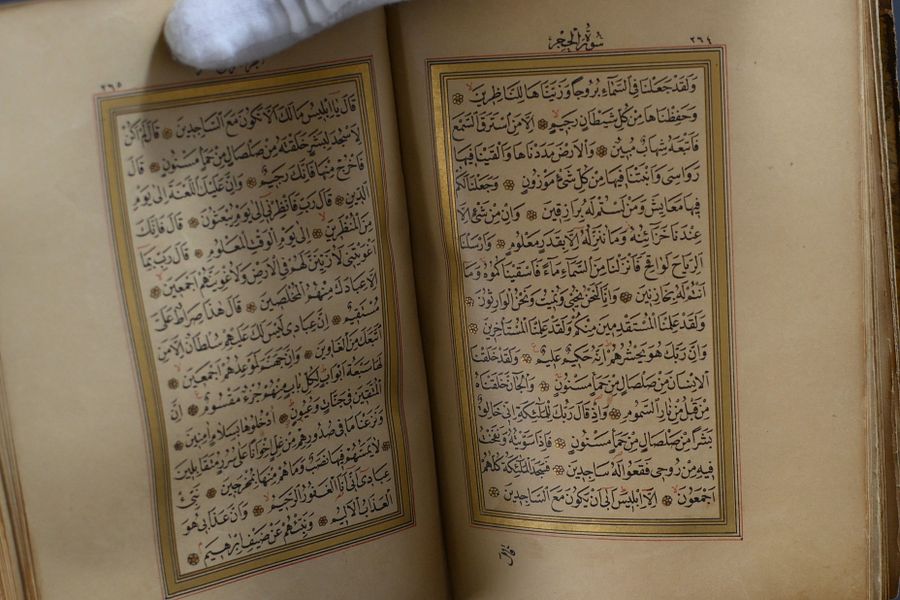 ٢٦٤
سورة الحجر
وَلَقَدْ جَعَلْنَا فِي السَّمَاءِ بُرُوجًا وَزَيَّنَّاهَا لِلنَّاظِرِينَ
وَحَفِظْنَاهَا مِنْ كُلِّ شَيْطَانٍ رَجِيمٍ اِلَّا مَنِ اسْتَرَقَ السَّمْعَ
فَاَتْبَعَهُ شِهَابٌ مُبِينٌ وَالْاَرْضَ مَدَدْنَاهَا وَاَلْقَيْنَا فِيهَا
رَوَاسِيَ وَاَنْبَتْنَا فِيهَا مِنْ كُلِّ شَيْءٍ مَوْزُونٍ وَجَعَلْنَا لَكُمْ
فِيهَا مَعَايِشَ وَمَنْ لَسْتُمْ لَهُ بِرَازِقِينَ وَاِنْ مِنْ شَيْءٍ اِلَّا
عِنْدَنَا خَزَائِنُهُ وَمَا نُنَزِّلُهُ اِلَّا بِقَدَرٍ مَعْلُومٍ وَاَرْسَلْنَا
الرِّيَاحَ لَوَاقِحَ فَاَنْزَلْنَا مِنَ السَّمَاءِ مَاءً فَاَسْقَيْنَاكُمُوهُ وَمَا
اَنْتُمْ لَهُ بِخَازِنِينَ وَاِنَّا لَنَحْنُ نُحْيِي وَنُمِيتُ وَنَحْنُ الْوَارِثُونَ
وَلَقَدْ عَلِمْنَا الْمُسْتَقْدِمِينَ مِنْكُمْ وَلَقَدْ عَلِمْنَا الْمُسْتَأْخِرِينَ
وَاِنَّ رَبَّكَ هُوَ يَحْشُرُهُمْ اِنَّهُ حَكِيمٌ عَلِيمٌ وَلَقَدْ خَلَقْنَا
الْاِنْسَانَ مِنْ صَلْصَالٍ مِنْ حَمَأٍ مَسْنُونٍ وَالْجَانَّ خَلَقْنَاهُ
مِنْ قَبْلُ مِنْ نَارِ السَّمُومِ وَاِذْ قَالَ رَبُّكَ لِلْمَلٰئِكَةِ اِنِّي خَالِقٌ
بَشَرًا مِنْ صَلْصَالٍ مِنْ حَمَأٍ مَسْنُونٍ فَاِذَا سَوَّيْتُهُ وَنَفَخْتُ
فِيهِ مِنْ رُوحِي فَقَعُوا لَهُ سَاجِدِينَ فَسَجَدَ الْمَلٰئِكَةُ كُلُّهُمْ
اَجْمَعُونَ اِلَّا اِبْلِيسَ اَبٰى اَنْ يَكُونَ مَعَ السَّاجِدِينَ
قال
٢٦٥
قَالَ يَا اِبْلِيسُ مَا لَكَ اَلَّا تَكُونَ مَعَ السَّاجِدِينَ قَالَ لَمْ اَكُنْ
لِاَسْجُدَ لِبَشَرٍ خَلَقْتَهُ مِنْ صَلْصَالٍ مِنْ حَمَأٍ مَسْنُونٍ قَالَ
فَاخْرُجْ مِنْهَا فَاِنَّكَ رَجِيمٌ وَاِنَّ عَلَيْكَ اللَّعْنَةَ اِلٰى يَوْمِ
الدِّينِ قَالَ رَبِّ فَاَنْظِرْنِي اِلٰى يَوْمِ يُبْعَثُونَ قَالَ فَاِنَّكَ
مِنَ الْمُنْظَرِينَ اِلٰى يَوْمِ الْوَقْتِ الْمَعْلُومِ قَالَ رَبِّ بِمَا
اَغْوَيْتَنِي لَاُزَيِّنَنَّ لَهُمْ فِي الْاَرْضِ وَلَاُغْوِيَنَّهُمْ اَجْمَعِينَ
اِلَّا عِبَادَكَ مِنْهُمُ الْمُخْلَصِينَ قَالَ هٰذَا صِرَاطٌ عَلَيَّ
مُسْتَقِيمٌ اِنَّ عِبَادِي لَيْسَ لَكَ عَلَيْهِمْ سُلْطَانٌ اِلَّا مَنِ
اتَّبَعَكَ مِنَ الْغَاوِينَ وَاِنَّ جَهَنَّمَ لَمَوْعِدُهُمْ اَجْمَعِينَ
لَهَا سَبْعَةُ اَبْوَابٍ لِكُلِّ بَابٍ مِنْهُمْ جُزْءٌ مَقْسُومٌ اِنَّ
الْمُتَّقِينَ فِي جَنَّاتٍ وَعُيُونٍ اُدْخُلُوهَا بِسَلَامٍ اٰمِنِينَ
وَنَزَعْنَا مَا فِي صُدُورِهِمْ مِنْ غِلٍّ اِخْوَانًا عَلٰى سُرُرٍ مُتَقَابِلِينَ
لَا يَمَسُّهُمْ فِيهَا نَصَبٌ وَمَا هُمْ مِنْهَا بِمُخْرَجِينَ نَبِّئْ
عِبَادِي اَنِّي اَنَا الْغَفُورُ الرَّحِيمُ وَاَنَّ عَذَابِي هُوَ
الْعَذَابُ الْاَلِيمُ وَنَبِّئْهُمْ عَنْ ضَيْفِ اِبْرٰهِيمَ